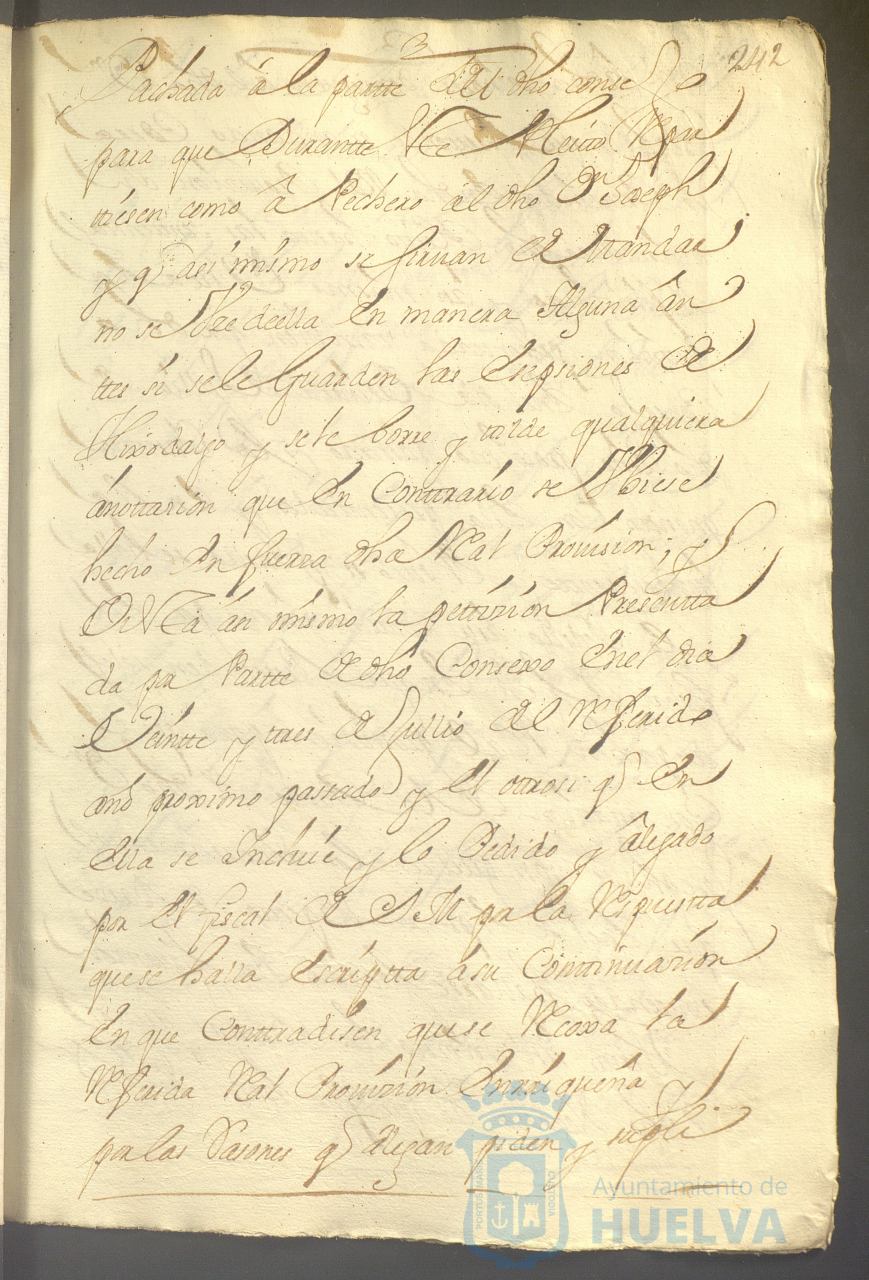 3
242
Pachada á la partte del dho conse Jo
para que Durantte este Pleito Repar
ttiesen como â Pechero al dho Dn Joseph
y q asi mismo se sirvan de Mandar
no se Vze de ella En manera Alguna ân
ttes si se le Guarden las Esepsiones de
Hixodalgo y se le borre y tilde qualquiera
ânottazión que En Conttrario se Vbiese
hecho En fuerza dha Real Provision; y
Vista ási mismo la pettizión Presentta
da pr Partte de dho Consexo En el dia
Veíntte y ttres de Jullio del Referido
año proximo passado y el ottrosi q En
Ella se Incluíe y lo Pedido y álegado
por El fiscal de S M pr la Respuestta
que se halla Escriptta ásu Conttinuazíón
En que Conttradisen que se Recoxa la
Referida Real Provizión Enrriqueña y
por las Rasones q álegan piden y supli
PORTUS MARIS
CUSTODIA
Ayuntamiento de
HUELVA